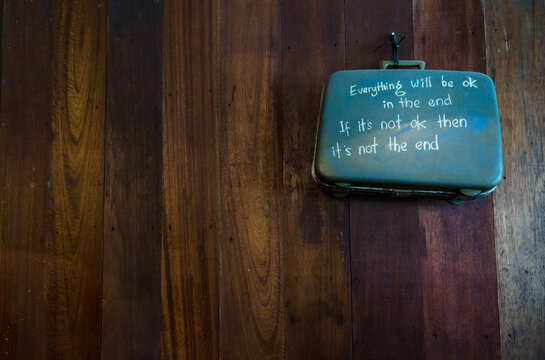 Everything will be ok
in the end
If it's not ok then
it's not the end